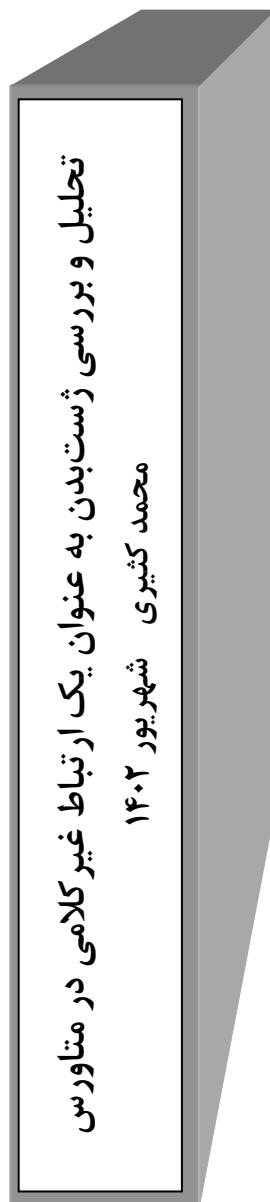 تحلیل و بررسی ژست‌بدن به عنوان یک ارتباط غیرکلامی در متاورس
محمد کثیری شهریور ۱۴۰۲